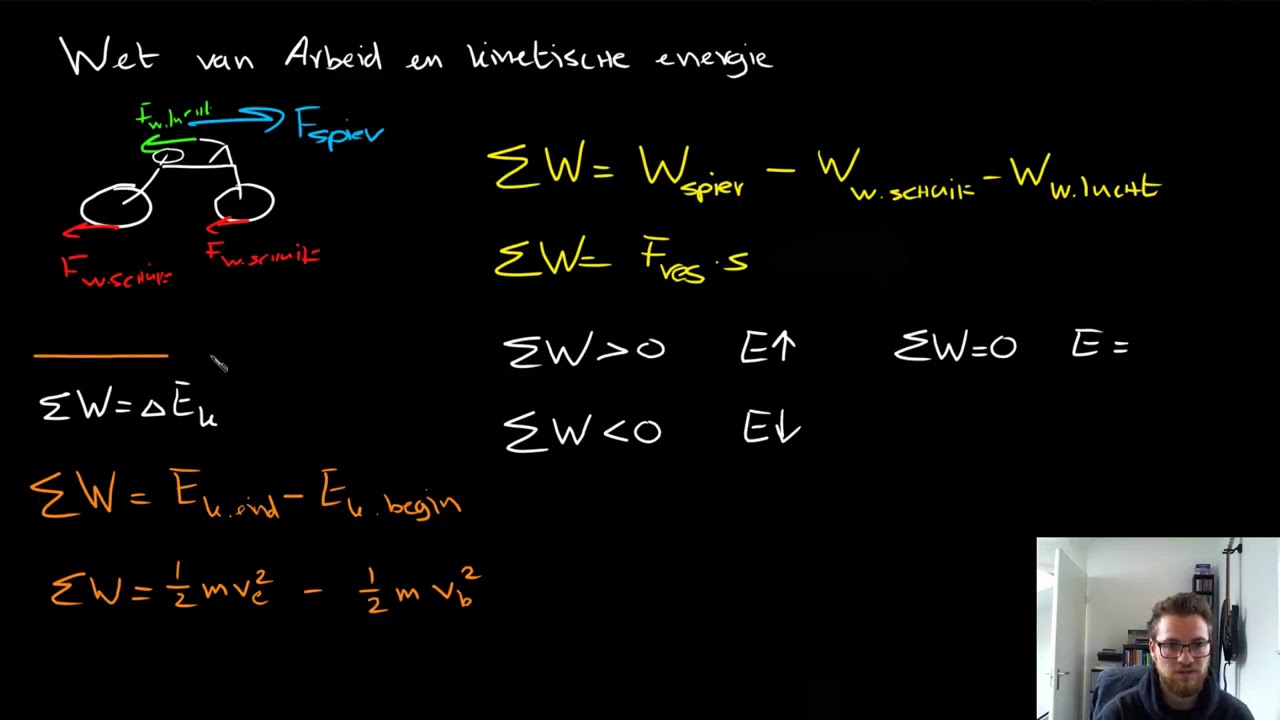 Wet van Arbeid en kinetische energie
F w.lucht
F spier
F w.schuif
F w.schuif
ΣW = W spier - W w.schuif - W w.lucht
ΣW = F res · s
ΣW > 0 E↑ ΣW = 0 E =
ΣW < 0 E↓
ΣW = △E k
ΣW = E k.eind - E k.begin
ΣW = ½ m v e ² - ½ m v b ²